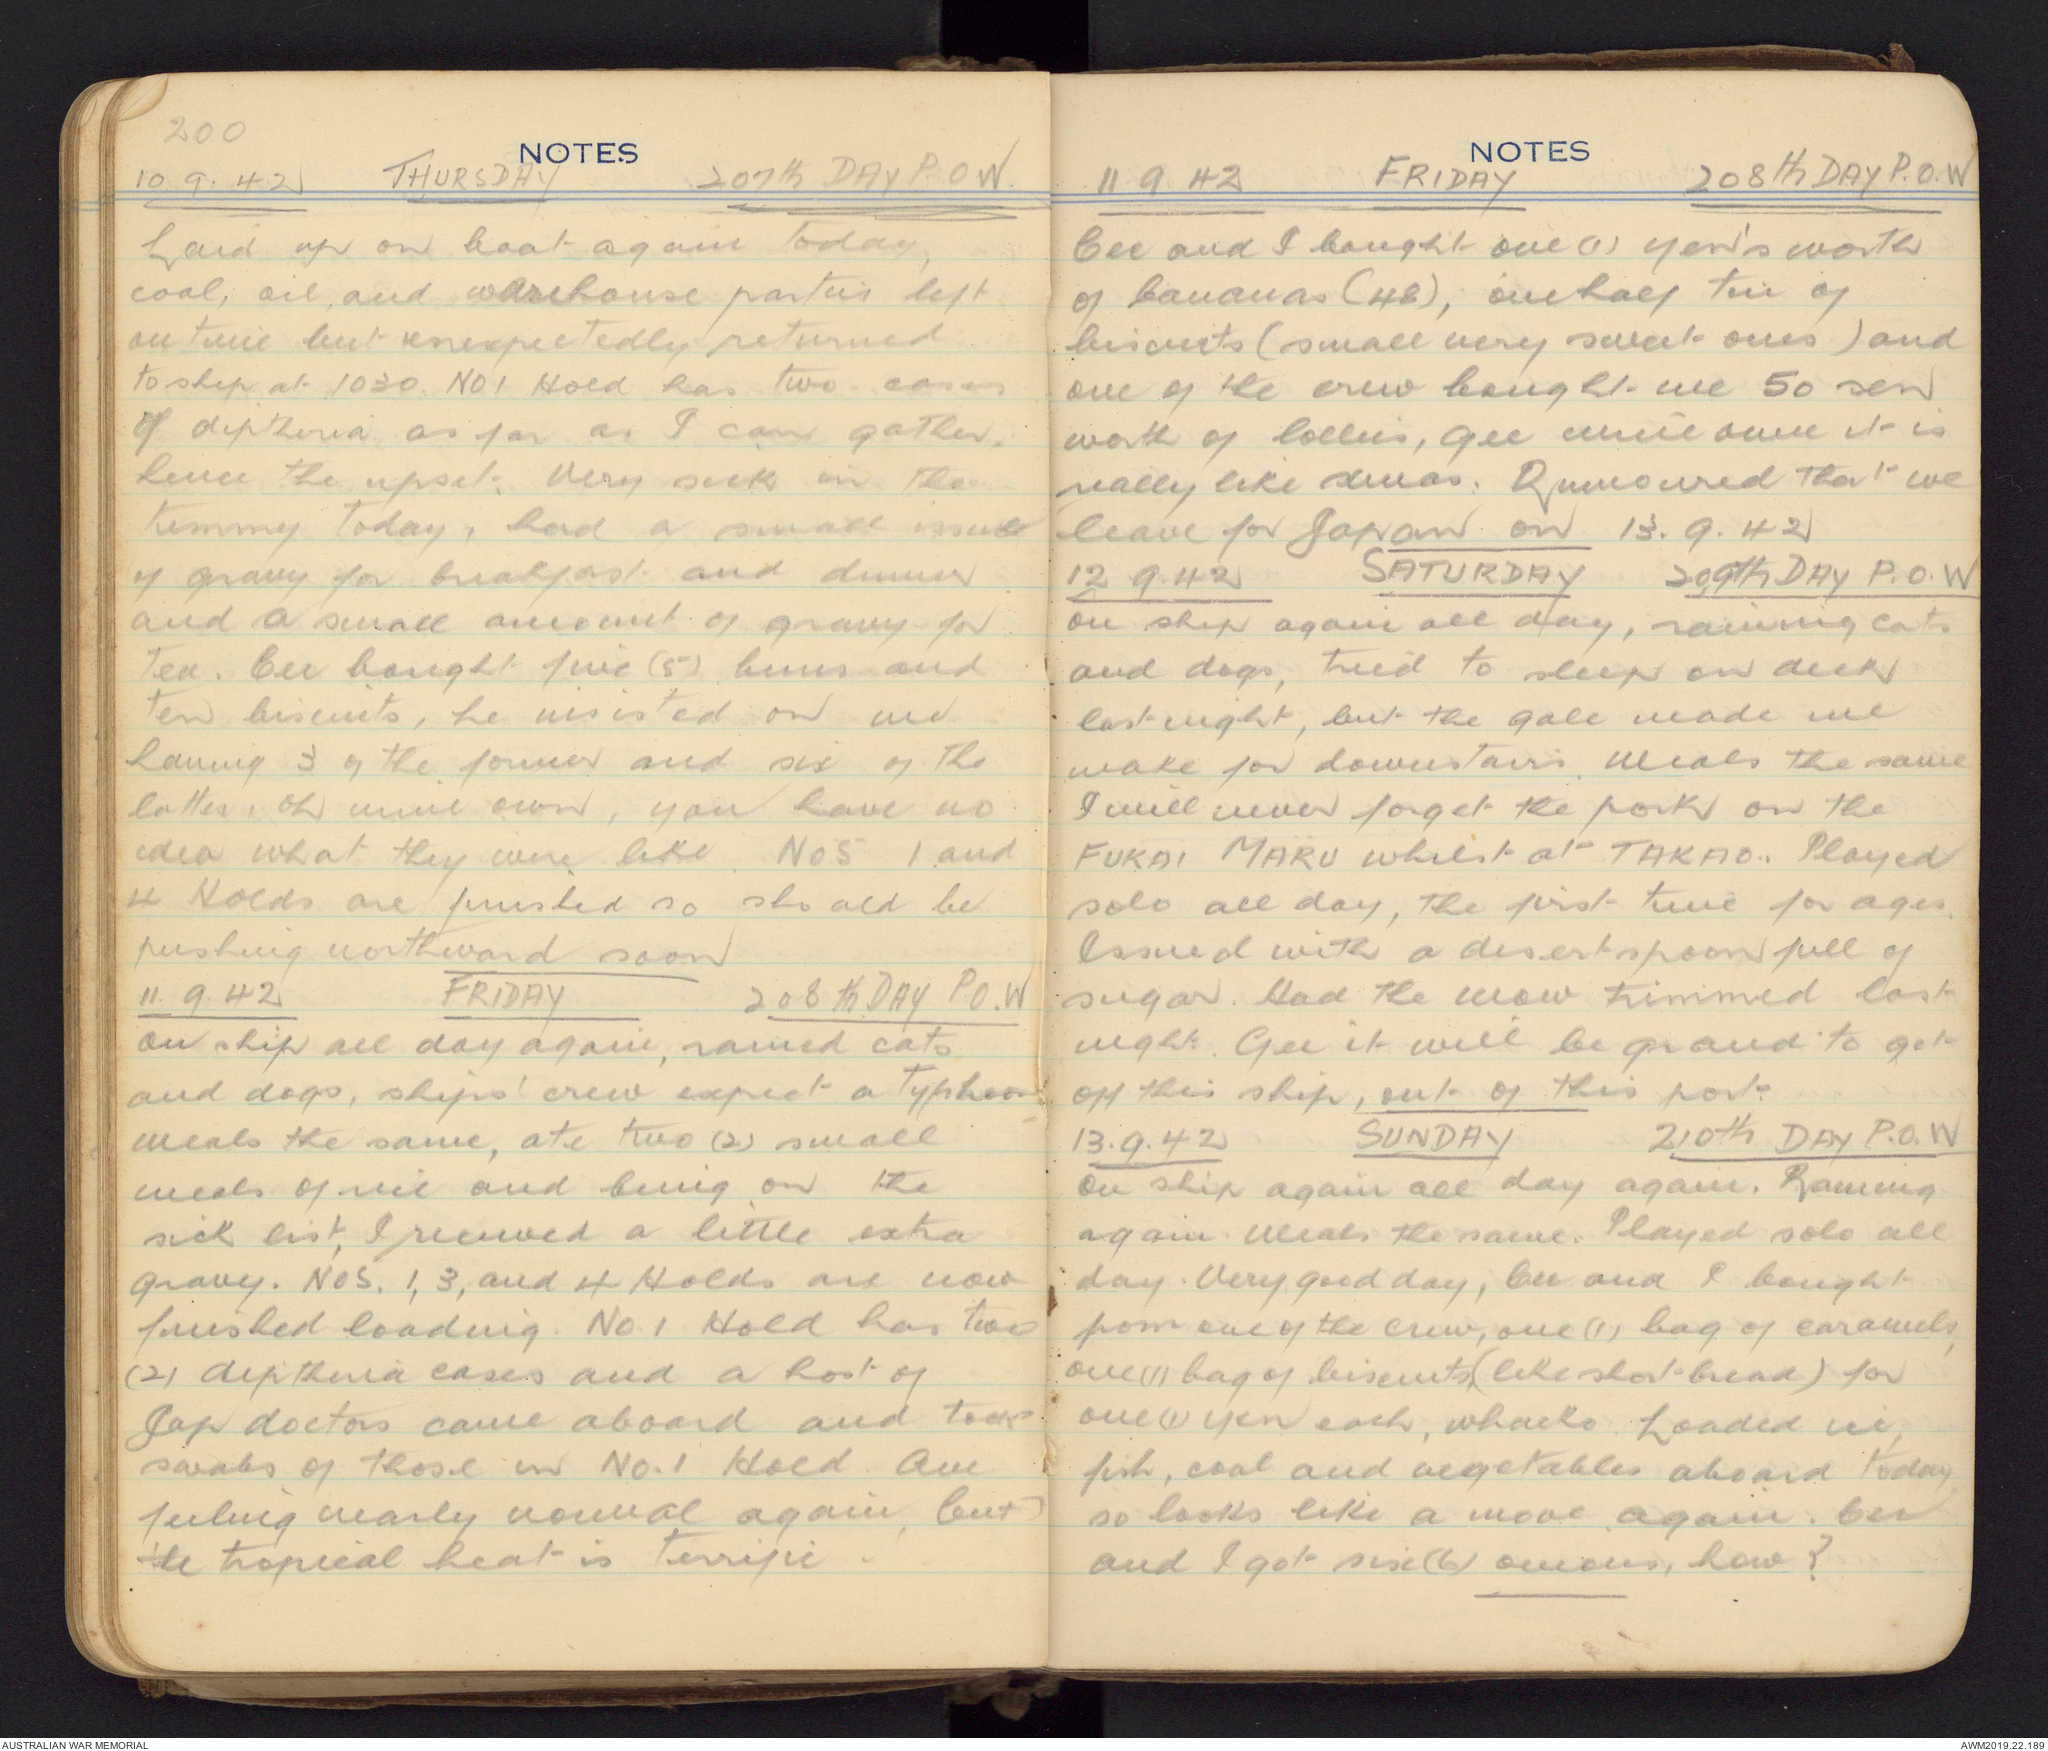 200
NOTES
10 9. 42 THURSDAY 207th DAY P.O.W.
Laid up on boat again today,
coal, oil, and warehouse parties left
on time but unexpectedly returned
to ship at 1030. NO 1 Hold has two cases
of diptheria as far as I can gather,
hence the upset. Very sick in the
tummy today, had a small issue
of gravy for breakfast and dinner
and a small amount of gravy for
tea. Cec bought five (5) buns and
ten biscuits, he insisted on me
having 3 of the former and six of the
latter, oh mine own, you have no
idea what they were like. NOS 1 and
4 Holds are finished so should be
pushing northward soon
11. 9. 42 FRIDAY 208th DAY P.O.W
On ship all day again, rained cats
and dogs, ships' crew expect a typhoon
Meals the same, ate two (2) small
meals of rice and being on the
sick list, I received a little extra
gravy. NOS. 1, 3, and 4 Holds are now
finished loading. No 1 Hold has two
(2) diptheria cases and a host of
Jap doctors came aboard and took
swabs of those in No. 1 Hold. Am
feeling nearly normal again, but
the tropical heat is terrific.
NOTES
11 9 42 FRIDAY 208th DAY P.O.W
Cec and I bought one (1) yen's worth
of bananas (48), one half tin of
biscuits (small very sweet ones) and
one of the crew bought me 50 sen
worth of lollies, Gee mine own it is
really like xmas. Rumoured that we
leave for Japan on 13. 9. 42
12 9. 42 SATURDAY 209th DAY P.O.W
On ship again all day, raining cats
and dogs, tried to sleep on deck
last night, but the gale made me
make for downstairs. Meals the same
I will never forget the pork on the
FUKAI MARU whilst at TAKAO. Played
solo all day, the first time for ages.
Issued with a desertspoon full of
sugar. Had the mow trimmed last
night. Gee it will be grand to get
off this ship, out of this port.
13. 9. 42 SUNDAY 210th DAY P.O.W
On ship again all day again. Raining
again. Meals the same. Played solo all
day. Very good day, Cec and I bought
from one of the crew, one (1) bag of caramels,
one (1) bag of biscuits (like short-bread) for
one (1) yen each, whacko. Loaded rice,
fish, coal and vegetables aboard today,
so looks like a move again. Cec
and I got six (6) onions, how?
AUSTRALIAN WAR MEMORIAL
AWM2019.22.189